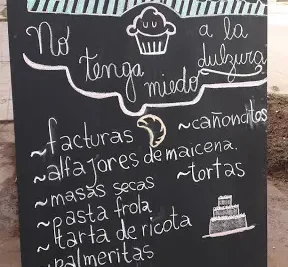 No tenga miedo a la dulzura
~facturas ~cañoncitos
~alfajores de maicena.
~masas secas ~tortas
~pasta frola
~tarta de ricota
~palmeritas